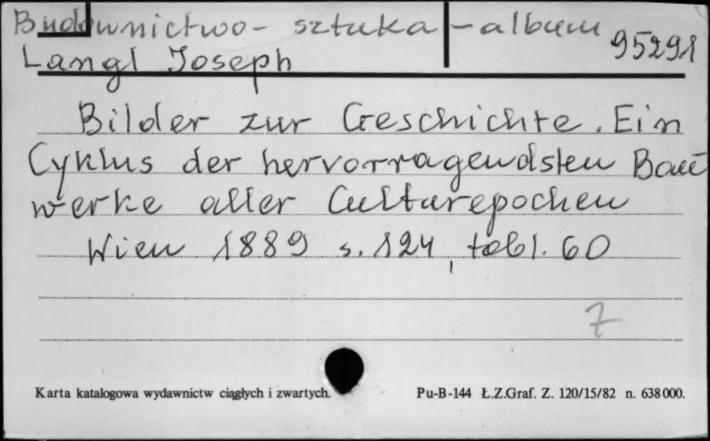 Budownictwo - sztuka - album
95291
Langl Joseph
Bilder zur Geschichte. Ein
Cyklus der hervorragendsten Bau=
werke aller Culturepochen
Wien 1889 s. 124, tabl. 60
7
Karta katalogowa wydawnictw ciągłych i zwartych. Pu-B-144 Ł.Z.Graf. Z. 120/15/82 n. 638000.